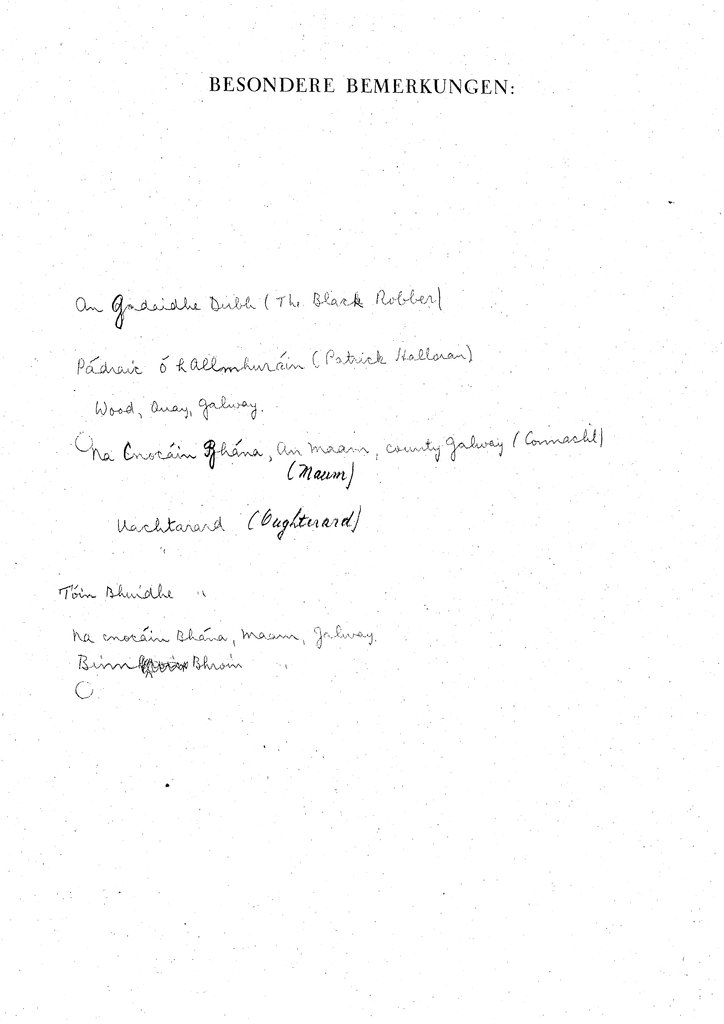 BESONDERE BEMERKUNGEN:
An Gadaidhe Dubh (The Black Robber)
Pádraic Ó hAllmhuráin (Patrick Halloran)
Wood, Quay, Galway.
Na Cnocáin Bhána, An Maam, county Galway (Connacht)
(Maum)
Uachtarard (Oughterard)
Tóin Bhuidhe "
Na cnocáin Bhána, Maam, Galway.
Binn Bhroin "